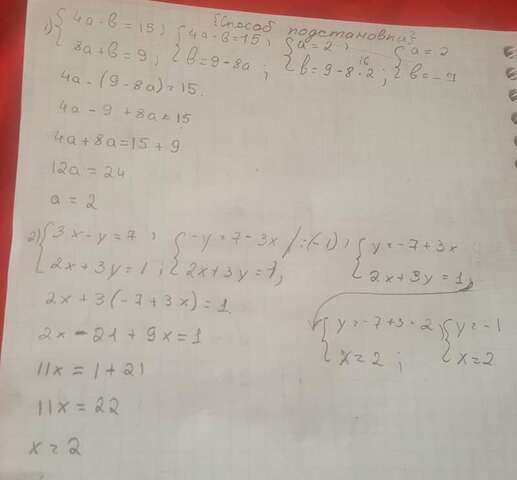 {Способ подстановки}
1) {4a - b = 15, {4a - b = 15, {a = 2, {a = 2
{8a + b = 9; {b = 9 - 8a; {b = 9 - 8 · 2; {b = -7
16
4a - (9 - 8a) = 15.
4a - 9 + 8a = 15
4a + 8a = 15 + 9
12a = 24
a = 2
2) {3x - y = 7, {-y = 7 - 3x /:(-1), {y = -7 + 3x
{2x + 3y = 1; {2x + 3y = 1, {2x + 3y = 1,
2x + 3(-7 + 3x) = 1.
2x - 21 + 9x = 1
11x = 1 + 21
11x = 22
x = 2
{y = -7 + 3 · 2 {y = -1
{x = 2; {x = 2